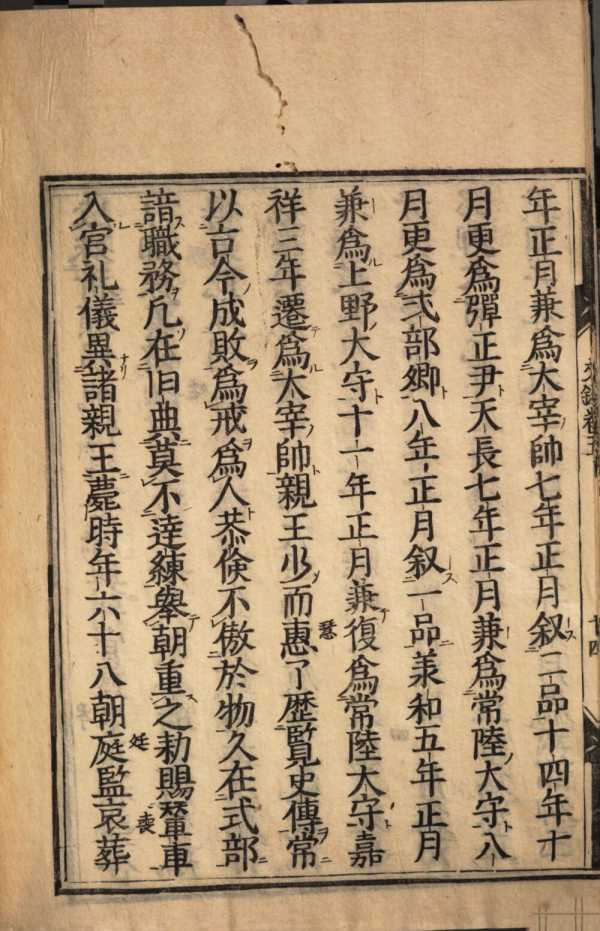 年正月兼爲太宰帥七年正月叙二品十四年十
月更爲彈正尹天長七年正月兼爲常陸太守八
月更爲式部卿八年正月叙一品羕和五年正月
兼爲上野太守十一年正月兼復爲常陸太守嘉
祥三年遷爲太宰帥親王少而惠了歴覧史傳常
以古今成敗爲戒爲人恭倹不傲於物久在式部
諳職務凢在旧典莫不達練擧朝重之勅賜輦車
入官礼儀異諸親王薨時年六十八朝庭監哀葬